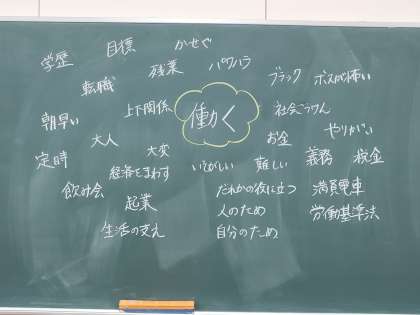 学歴 目標 かせぐ
転職 残業 パワハラ ブラック ボスが怖い
朝早い 上下関係 働く 社会こうけん
大人 お金 やりがい
定時 大変 いそがしい 難しい 義務 税金
経済をまわす
飲み会 起業 だれかの役に立つ 満員電車
人のため 労働基準法
生活の支え 自分のため